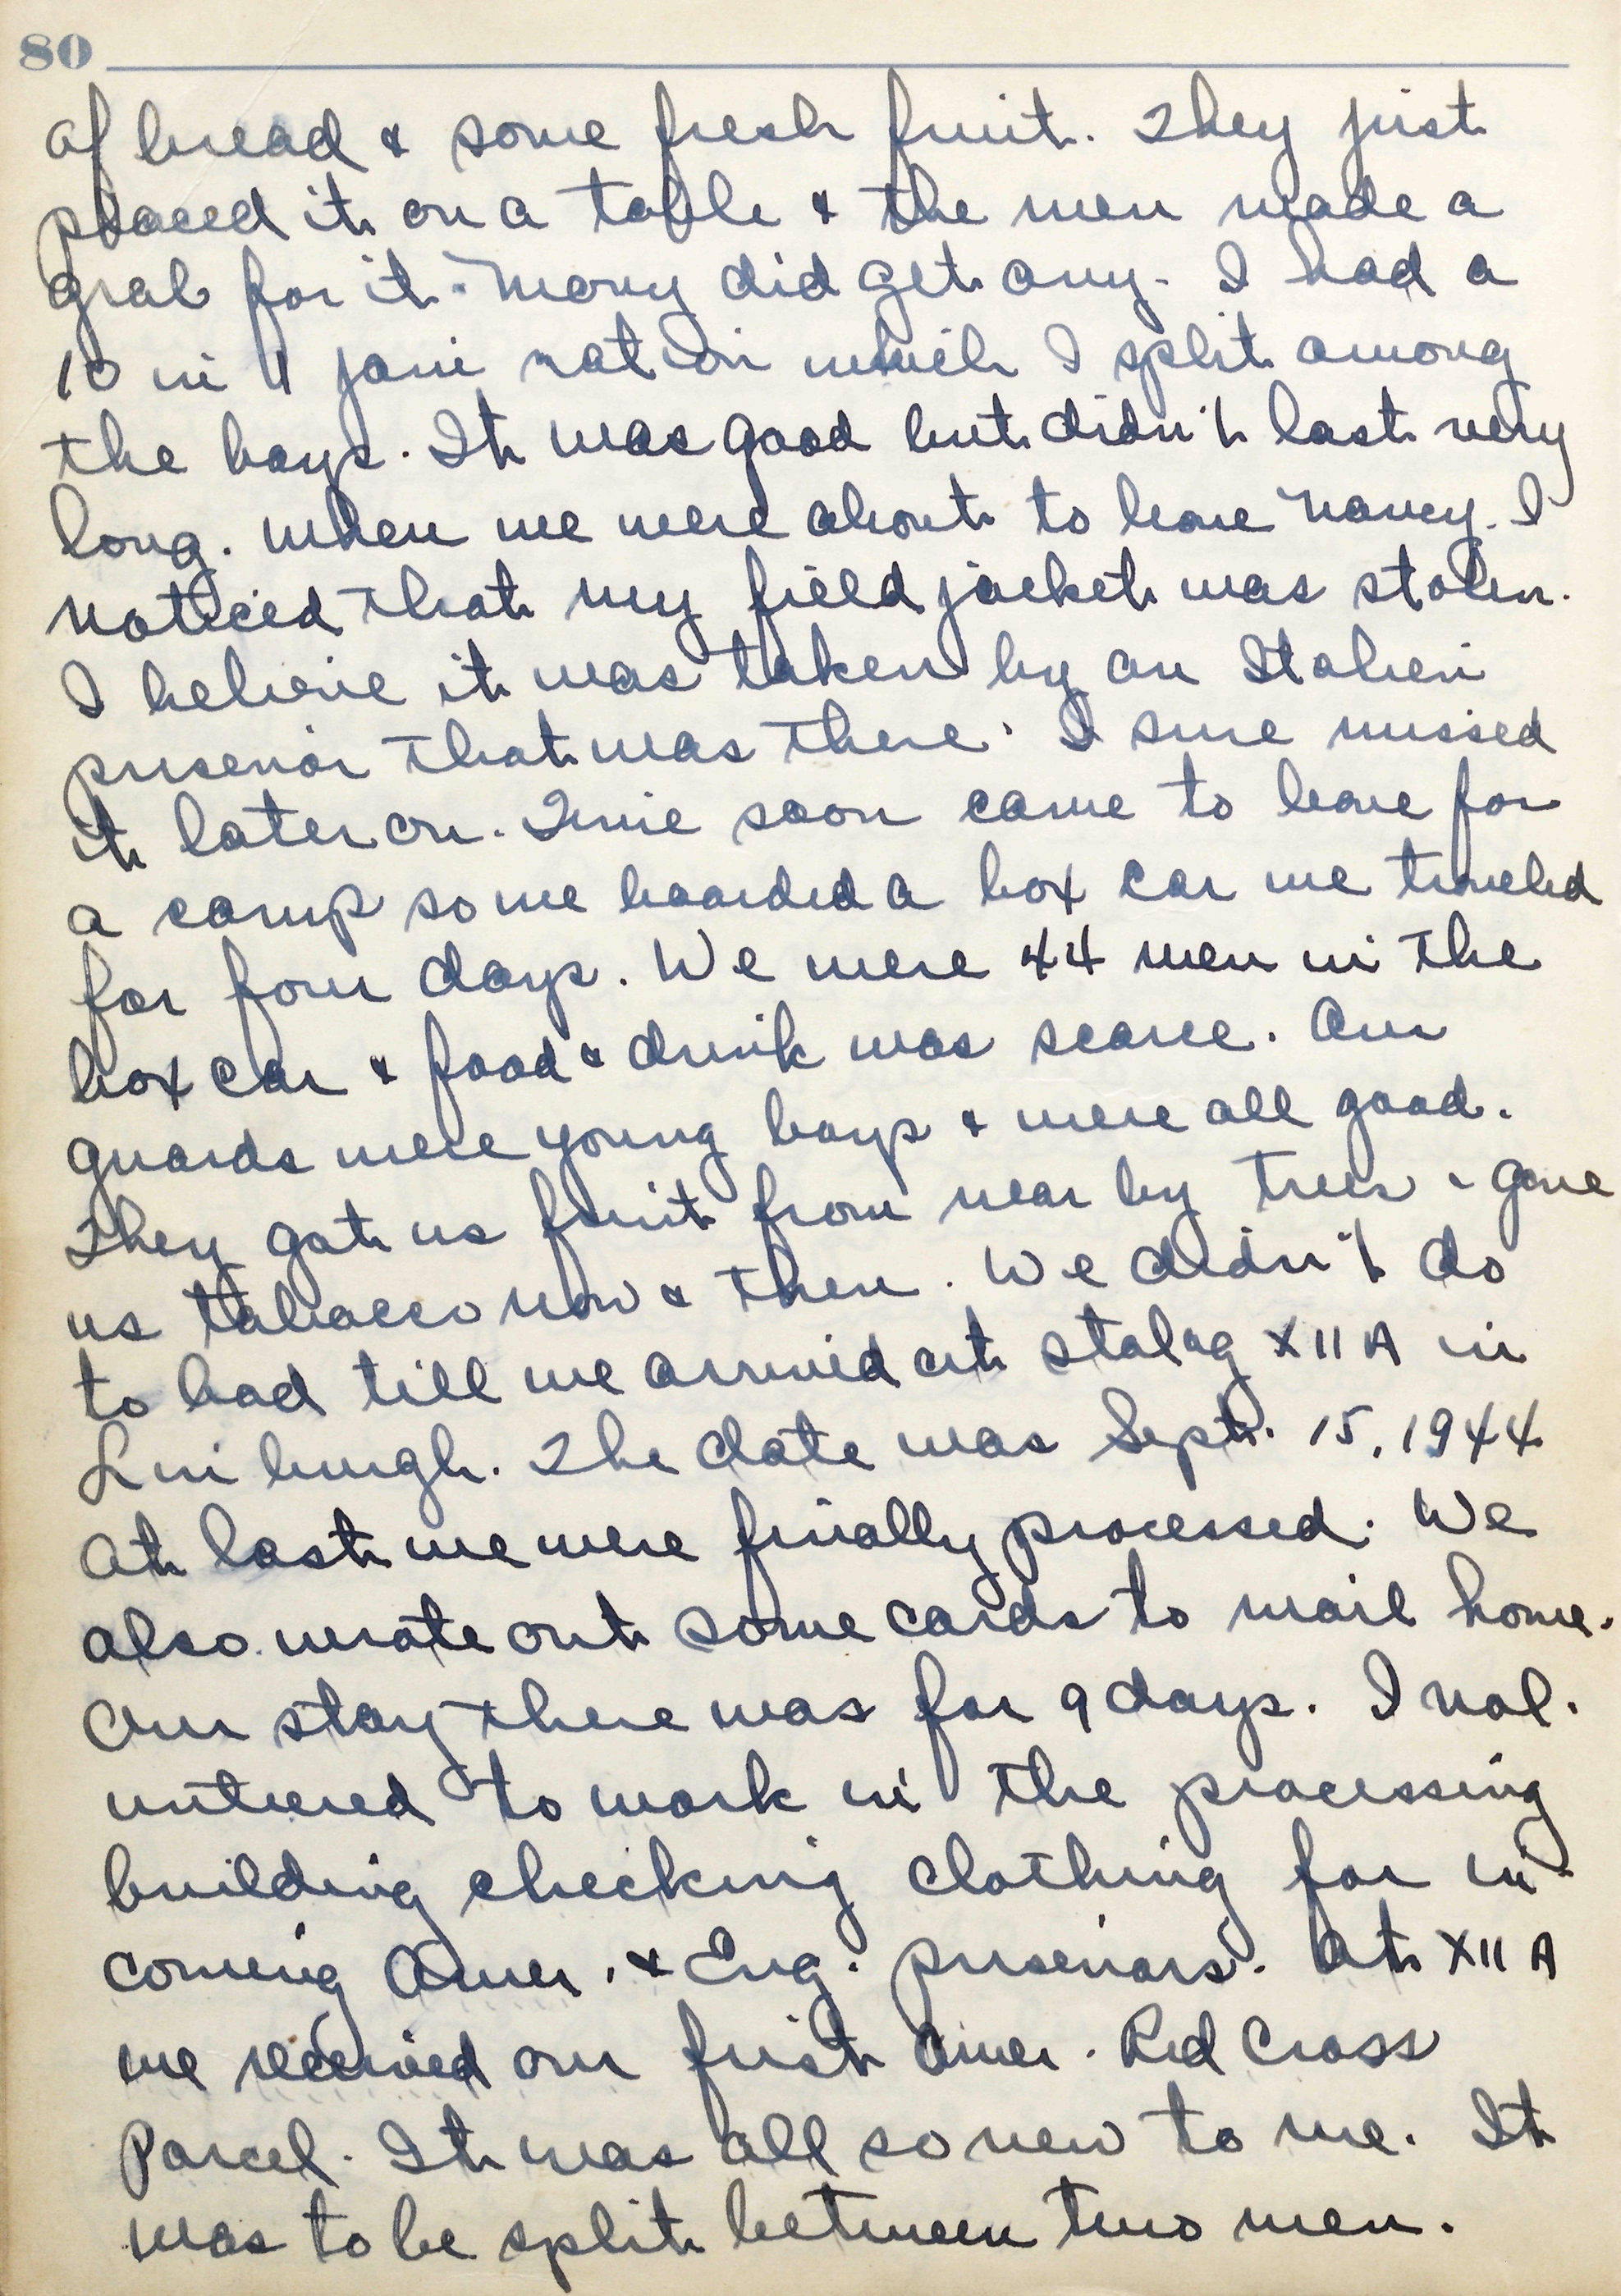 80
of bread & some fresh fruit. They just
placed it on a table & the men made a
grab for it. Many did get any. I had a
10 in 1 jam ration which I split among
the boys. It was good but didn't last very
long. When we were about to leave Nancy. I
noticed that my field jacket was stolen.
I believe it was taken by an Italien
prisenor that was there. I sure missed
it later on. Time soon came to leave for
a camp so we boarded a box car we traveled
for four days. We were 44 men in the
box car & food & drink was scarce. Our
guards were young boys & were all good.
They got us fruit from near by trees & gave
us tobacco now & then. We didn't do
to bad till we arrived at stalag XII A in
Limburgh. The date was Sept. 15, 1944
At last we were finally processed. We
also wrote out some cards to mail home.
Our stay there was for 9 days. I vol.
unteered to work in the processing
building checking clothing for in
coming Amer. & Eng. prisenors. At XII A
we received our first Amer. Red Cross
Parcel. It was all so new to me. It
was to be split between two men.